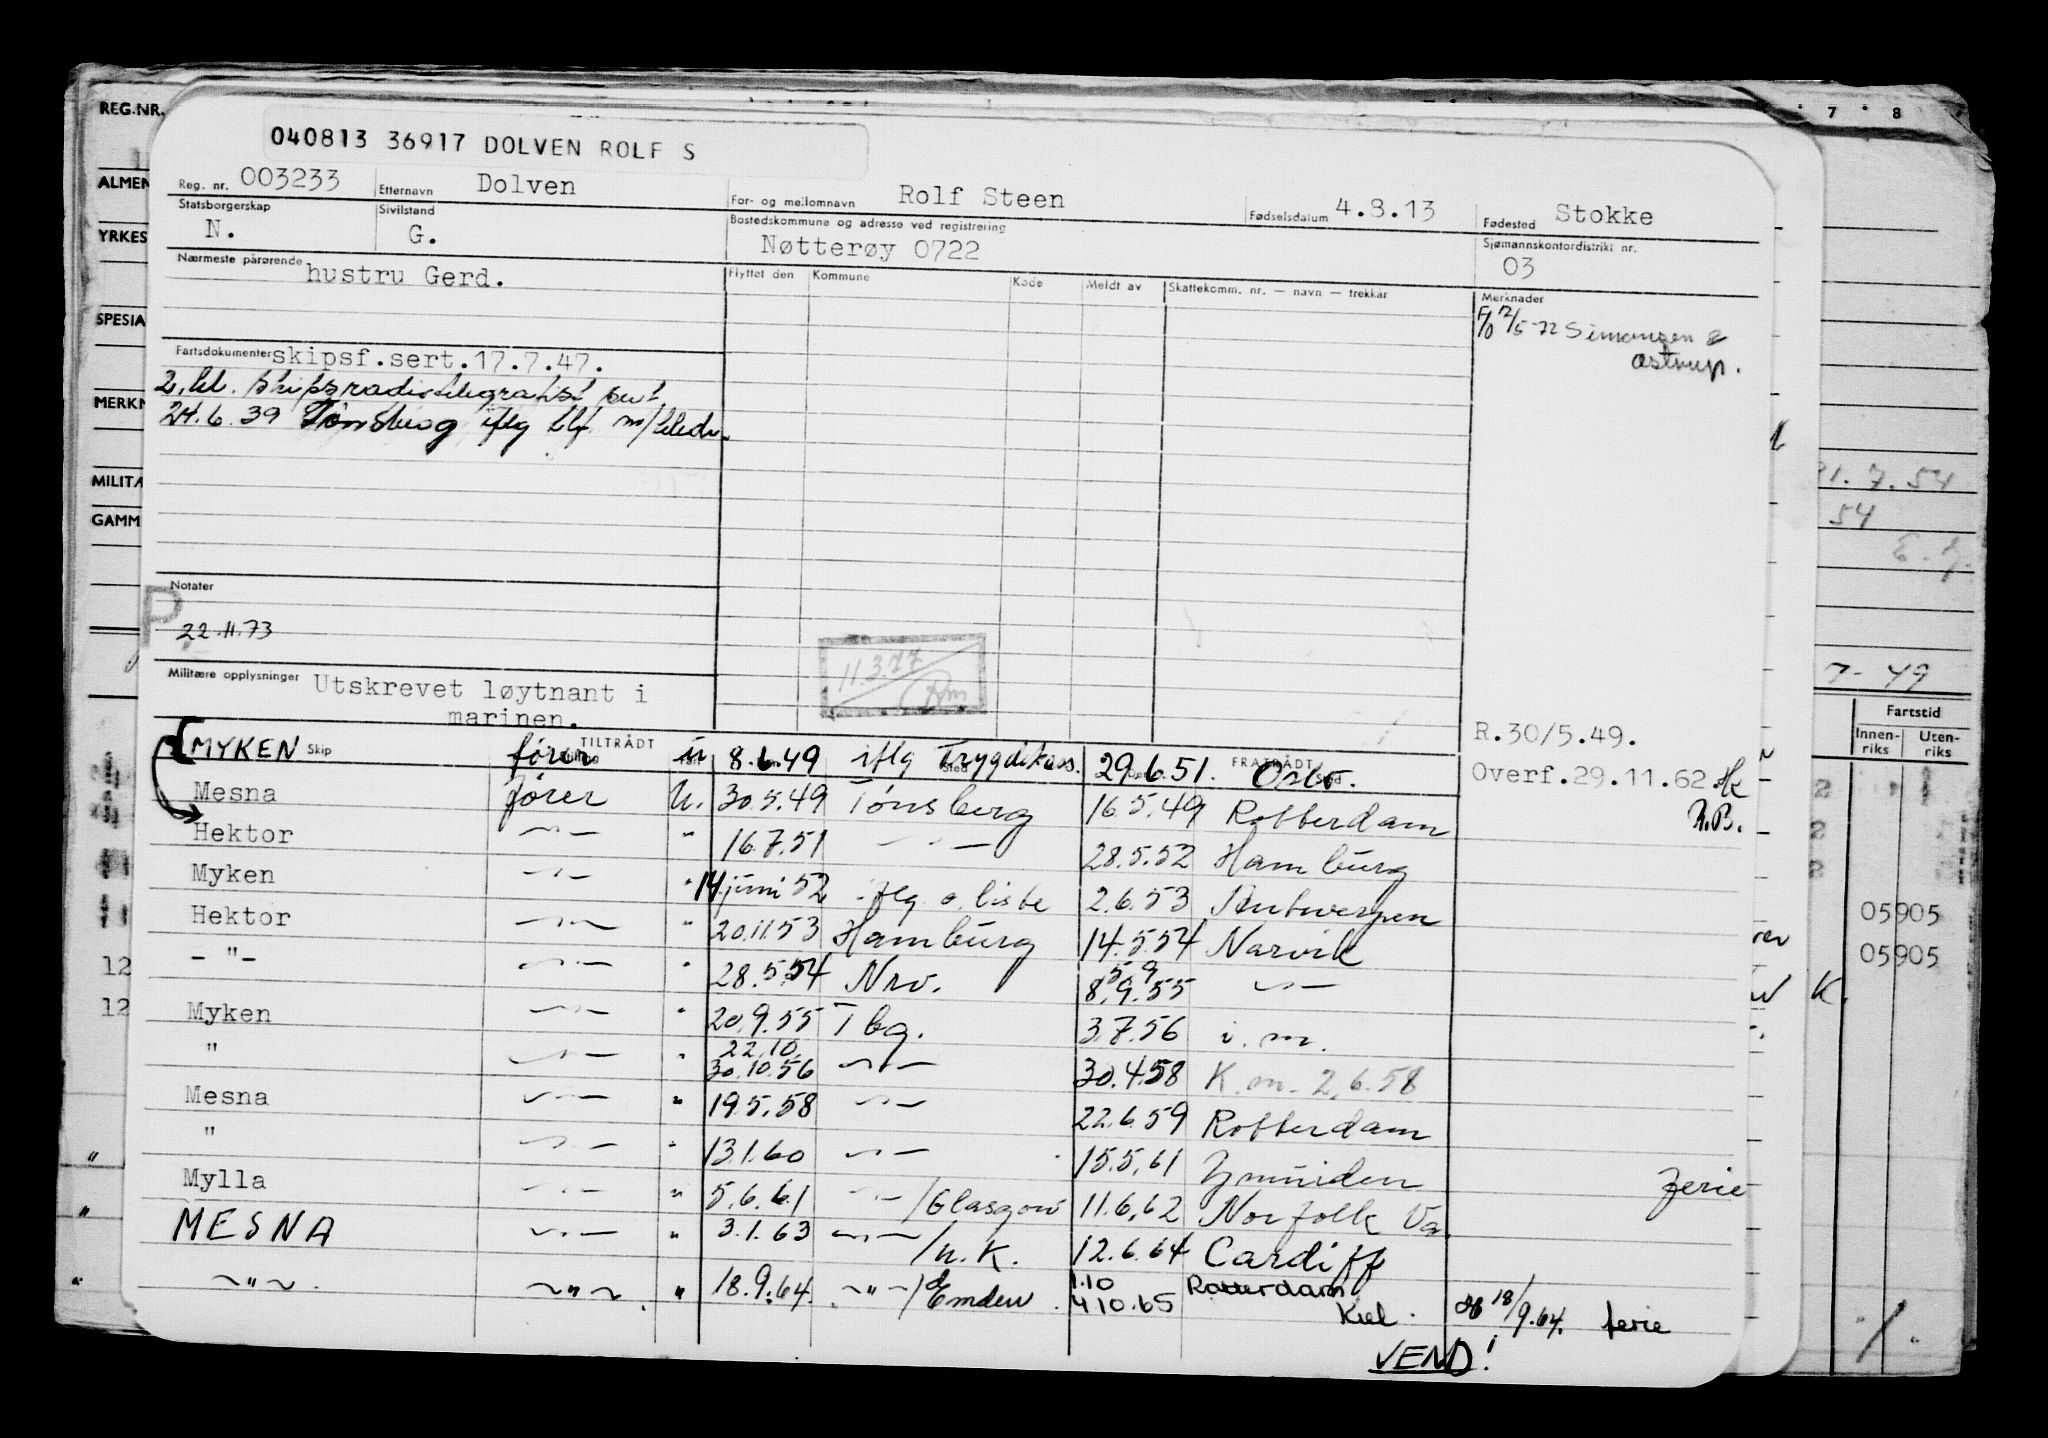 REG.NR.
7 8
040813 36917 DOLVEN ROLF S
ALMEN
Reg. nr. 003233 Etternavn Dolven For- og mellomnavn Rolf Steen Fødselsdatum 4.8.13 Fødested Stokke
YRKES
Statsborgerskap N. Sivilstand G. Bostedskommune og adresse ved registrering Nøtterøy 0722 Sjømannskontordistrikt nr. 03
Nærmeste pårørende hustru Gerd. Flyttet den Kommune Kode Meldt av Skattekomm. nr. — navn — trekkår Merknader
SPESIA
F/0 12/5-72 Simonsen &
Astrup.
Fartsdokumenter skipsf.sert.17.7.47.
2. kl. skipsradiotelegrafist sert.
MERKN
24.6.39 Tønsberg iflg tlf m/
MILITÆ
31.7.54
GAMM
54
Notater
P
22.11.73
11.3.77
Rm
7-49
Militære opplysninger Utskrevet løytnant i
marinen.
R.30/5.49.
Fartstid
Innen-riks Uten-riks
TILTRÅDT FRATRÅDT
MYKEN Skip fører u 8.6.49 iflg Trygdekass. 29.6.51. Oslo.
Overf.29.11.62
R.B.
Mesna fører U. 30.5.49 Tønsberg 16.5.49 Rotterdam
Hektor -"- " 16.7.51 -"- 28.5.52 Hamburg
Myken -"- " 14 juni 52 iflg o. liste 2.6.53 Antwerpen
05905
Hektor -"- " 20.11.53 Hamburg 14.5.54 Narvik
05905
- "- -"- " 28.5.54 Nrv. 5 9 8.9.55 -"-
12
12
K.
Myken -"- " 20.9.55 Tbg. 3.7.56 i.m.
" -"- " 22.10. 30.10.56 -"- 30.4.58 K.m. 2.6.58
Mesna -"- " 19.5.58 -"- 22.6.59 Rotterdam
" -"- " 13.1.60 -"- 15.5.61 Ijmuiden ferie
Mylla -"- " 5.6.61 -"-/Glasgow 11.6.62 Norfolk Va.
MESNA -"- " 3.1.63 -"-/U.K. 12.6.64 Cardiff
-"- -"- " 18.9.64. -"-/Emden 1.10 4 10.65 Rotterdam Kiel. 18/9.64. ferie
VEND!